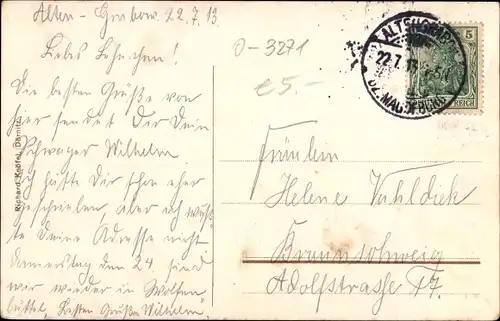 Alten-Grabow 22.7.13
Liebes Lehnchen!
Die besten Grüße von
hier sendet Dir Dein
Schwager Wilhelm
Ich hätte Dir schon eher
geschrieben, aber ich wuß
te Deine Adresse nicht
Donnerstag den 24. sind
wir wieder in Wolfen
büttel, Besten Gruß Wilhelm
O-3271
€5.-
22.7.13
BZ. MAGDEBURG
5
REICH
Fräulein
Helene Vahldiek
Braunschweig
Adolfstrasse 57.
Richard Knöfel, Dörnitz.